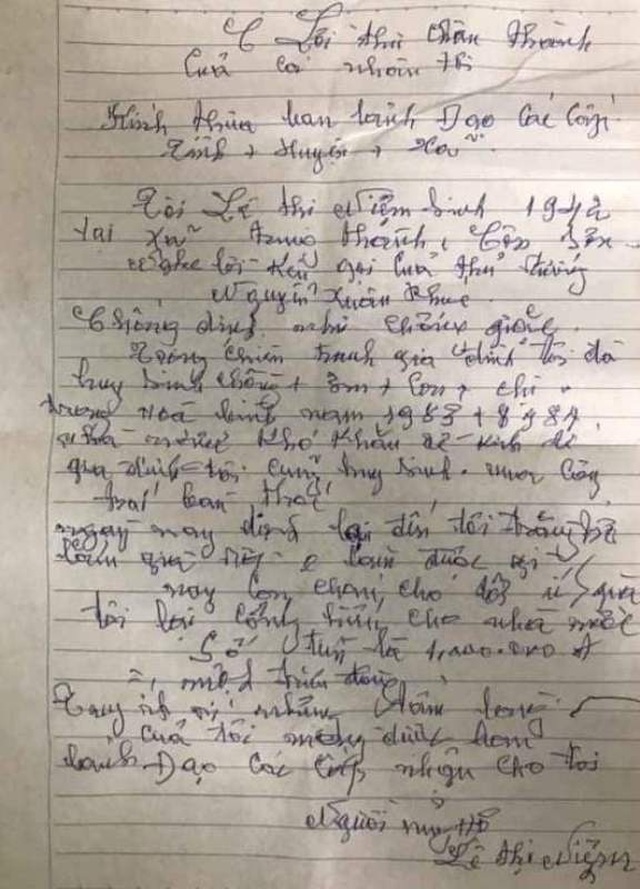 Lời thư chân thành
Của cá nhân tôi
Kính thưa ban lãnh Đạo các Cấp
Tỉnh + Huyện + Xã
Tôi Lê thị Niệm sinh 1942
tại xã trung thành, Nông
Nghe lời kêu gọi của thủ tướng
Nguyễn Xuân Phúc
Chống dịch như chống giặc
Trong chiến tranh gia đình tôi đã
huy sinh chồng + + con + chi
trong hoà bình năm 1983 + 8 1984
nhà nước khó khăn về kinh tế
gia đình tôi cũng huy sinh. mươi công
ngày nay dịch lại đến tôi trăng
làm được gì
nay con cháu cho tôi quà
tôi lại cống hiến cho nhà nước
Số tiền là 1,000.000 đ
= một triệu đồng
Tuy ít ỏi nhưng tấm lòng
của tôi mong được ban
lãnh Đạo các Cấp nhận cho tôi
Người
Lê thị Niệm